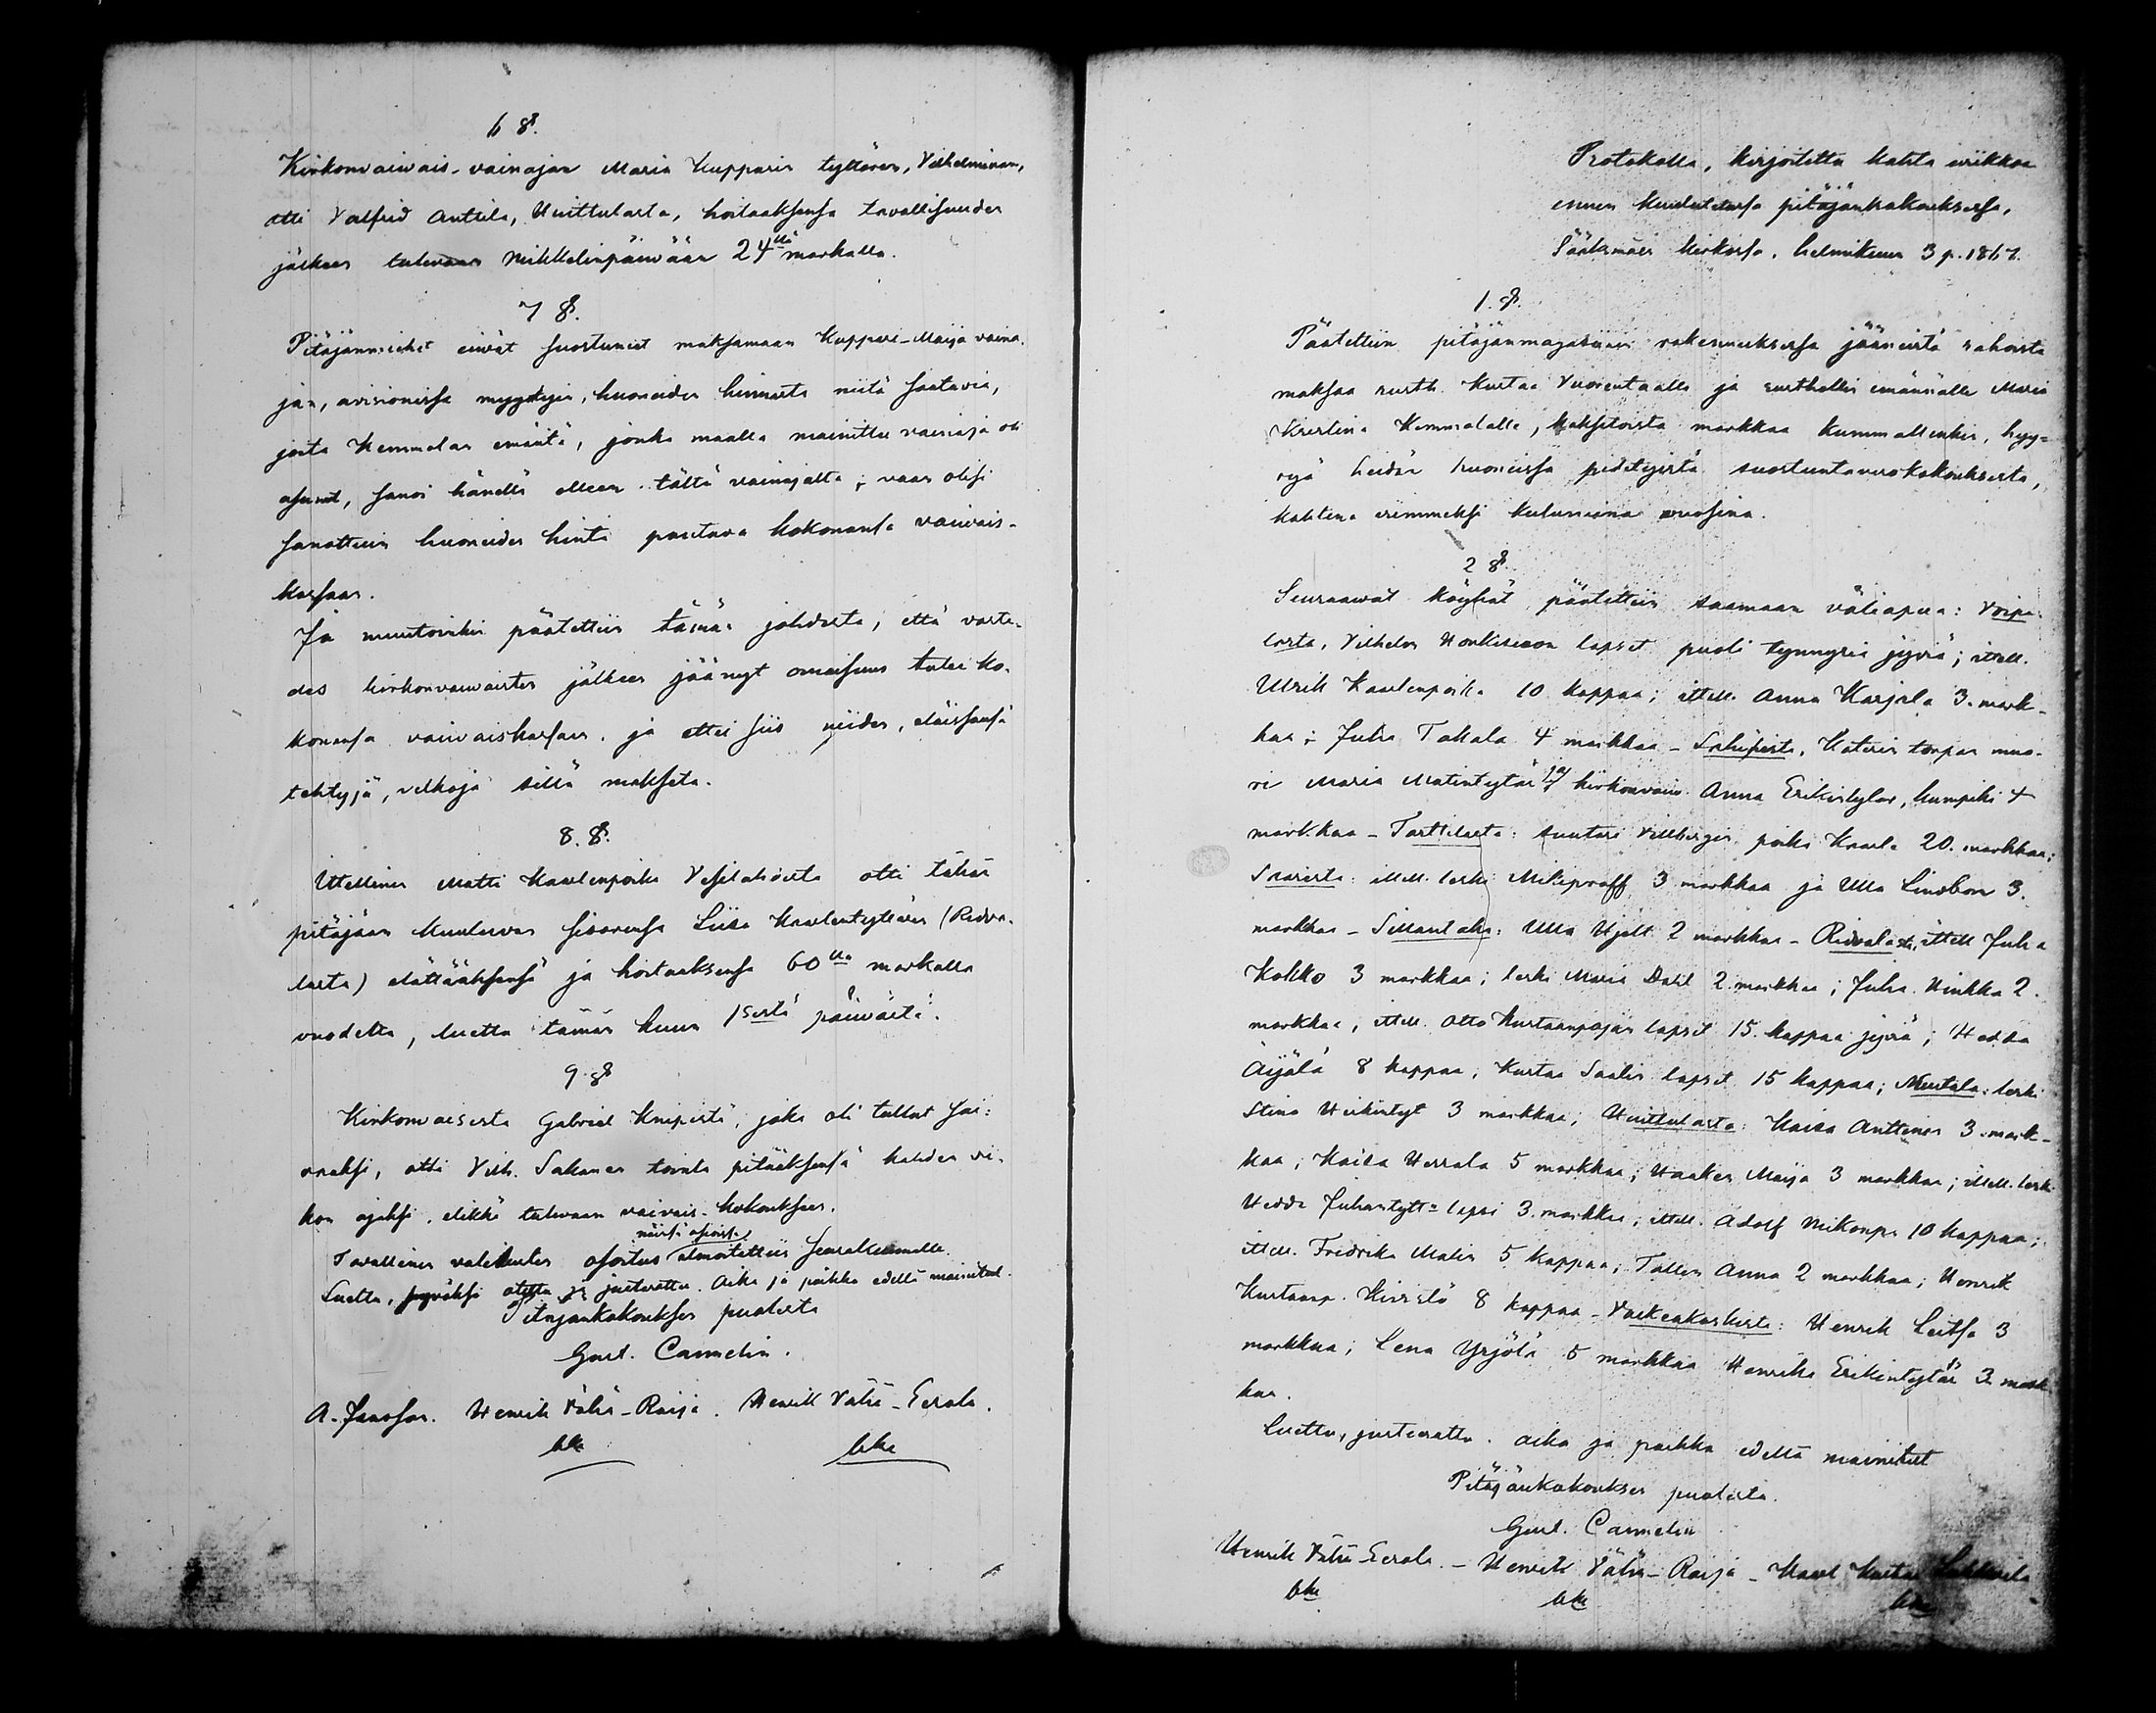 6 §.
Kirkonvaivais-vainajan Maria Kupparin tyttären, Vilhelminan,
otti Valfrid Anttila, Huittulasta, hoitaaksensa tavallisuuden
jälkeen tulevaan Mikkelinpäivään 24llä markalla.
7 §.
Pitäjänmiehet eivät suostuneet maksamaan Kuppari-Maija vaina-
jan, avisionissa myydtyjen, huoneiden hinnasta niitä saatavia,
joita Kemmolan emäntä, jonka maalla mainittu vainaja oli
asunut, sanoi hänellä olleen tältä vainajalta; vaan olisi
sanottuin huoneiden hinta pantava kokonansa vaivais-
kassaan.
Ja muutoinkin päätettiin tämän johdosta, että vasta-
des kirkonvaivaisten jälkeen jäänyt omaisuus tulee ko-
konansa vaivaiskassaan, ja ettei siis niiden, eläissänsä
tehtyjä, velkoja sillä makseta.
8. §.
Itellinen Matti Kaarlenpoika Vesilahdesta otti tähän
pitäjään kuuluvan sisarensa Liisa Kaarlentyttären (Ridva-
lasta) elättääksensä ja hoitaaksensa 60lla markalla
vuodelta, luettu tämän kuun 1sestä päivästä.
9. §
Kirkonvaisesta Gabriel Knipistä, joka oli tullut sai-
raaksi, otti Vilh. Sakanen toimla pitääksensä kahden vi-
kon ajaksi, elikkä tulevaan vaivais-kokouksseen.
näistä asioista
Tavallinen valitusten osoitus almoitettiin seurakunnalle.
Luettu, hyväksi otettu ja justerattu. Aika ja paikka edellä mainitut.
Pitäjänkokouksen puolesta
Gust. Cannelin.
A. Jansson. Henrik Vähä-Raija. Henrik Vähä-Eerola.
bke bke
Protokolla, kirjoitettu kahta viikkoa
ennen kuulutetussa pitäjänkokouksessa,
Sääksmäen kirkossa, helmikuun 3 p. 1867.
1. §.
Päätettiin pitäjänmagasiinin rakennuksessa jääneistä rahoista
maksaa rusth. Kustaa Vuorentaalle ja rusthollin emännälle Maria
Kristina Kemmolalle, kaksitoista markkaa kummallenkin, hyy-
ryä heidän huoneissa pidetyistä suostuntaverokokouksista,
kahtena viimmeksi kuluneina vuosina.
2 §.
Seuraavat köyhät päätettiin saamaan väliapua: Voipa-
lasta, Vilhelm Honkisuon lapset puoli tynnyriä jyviä; itell.
Ulrik Kaarlenpoika 10 kappaa; itell. Anna Karjula 3. mark-
kaa; Juha Takala 4 markkaa - Katisen torpan muo-
ri Maria Matintytär ja kirkonvaiv. Anna Erikintytär, kumpiki 4
markkaa - Tarttilasta: suutari Villbergin poika Kaarle 20. markkaa;
Saarista: itell. leski Mikiprooff 3 markkaa ja Ulla Lindbom 3.
markkaa - Sillantaka: Ulla Hjelt 2 markkaa - Ridvalasta, itell. Juha
Kokko 3 markkaa; leski Maria Dahl 2 markkaa; Juha Hinkka 2.
markkaa, itell. Otto Kustaanpojan lapset 15 kappaa jyviä; Hedda
Äijälä 8 kappaa, Kustaa Saalin lapset 15 kappaa; Muutala: leski
Stina Heikintyt 3 markkaa; Huittulasta: Kaisa Anttinen 3 mark-
kaa; Kaisa Uerrala 5 markkaa; Haaken Maija 3 markkaa; itell. leski
Hedda Juhantytt: lapsi 3. markkaa; itell. Adolf Mikonp. 10 kappaa;
itell. Fredrika Malin 5 kappaa; Tallin Anna 2 markkaa; Henrik
Kustaanp. Kivistö 8 kappaa - Valkeakoskista: Henrik Leitsa 3
markkaa; Lena Yrjölä 5 markkaa Henrika Erikintytär 3 mark-
kaa.
Luettu, justerattu. Aika ja paikka edellä mainitut
Pitäjänkokouksen puolesta.
Gust. Cannelin
Henrik Vähä-Eerola. - Henrik Vähä-Raija - Kaarl Kustaa
bke bke bke